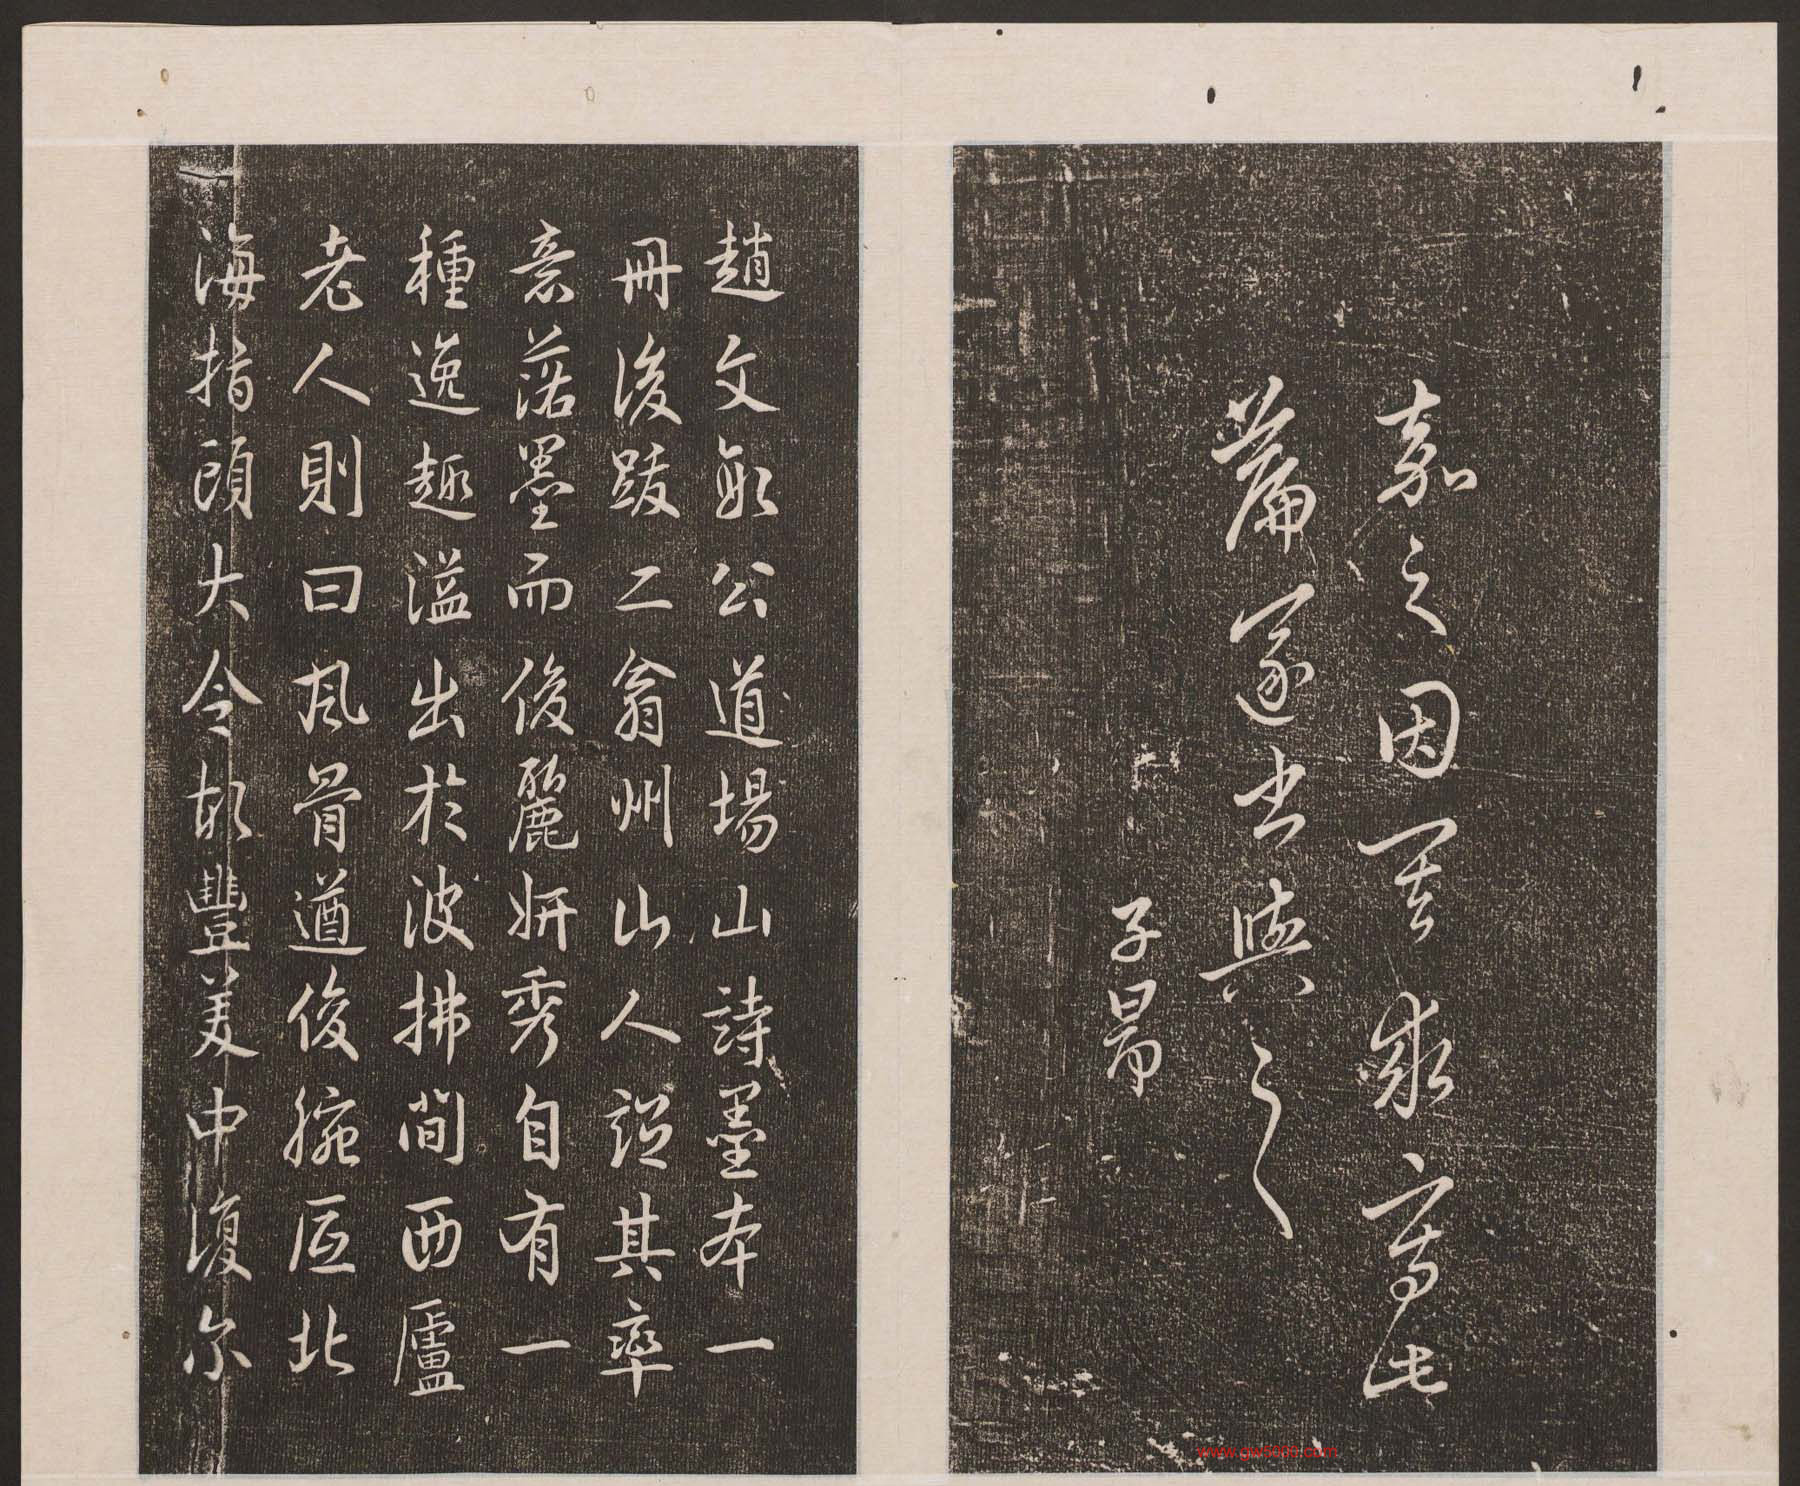 嘉之因其求寫此
篇遂書與之
子昂
趙文敏公道場山詩墨本一
冊後跋二翁州山人謂其率
意落墨而俊麗妍秀自有一
種逸趣溢出於波拂間西廬
老人則曰風骨遒俊腕匠北
海指頭大令故豐美中復爾
www.gw5000.com